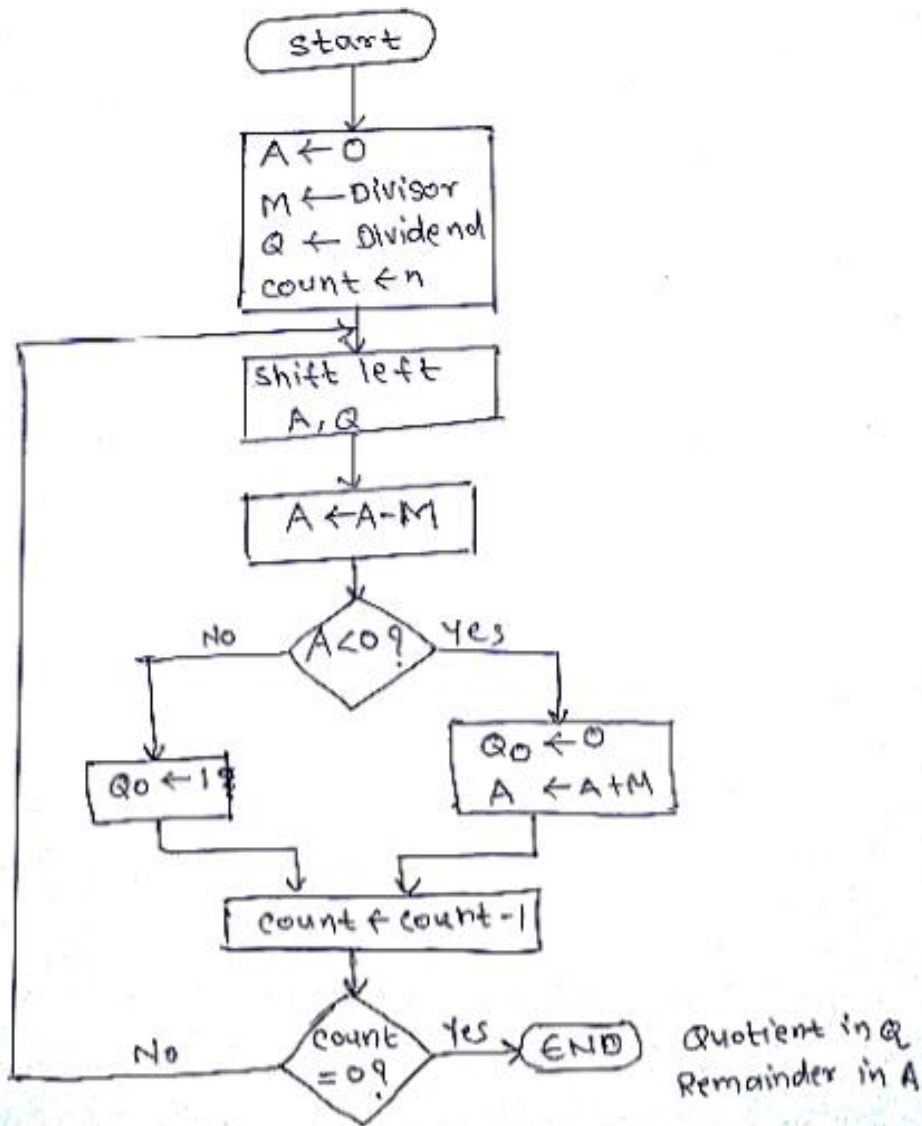 start
A ← 0
M ← Divisor
Q ← Dividend
count ← n
shift left
A, Q
A ← A-M
A<0?
No
Yes
Q0 ← 1
Q0 ← 0
A ← A+M
count ← count-1
count
=0?
No
Yes
END
Quotient in Q
Remainder in A